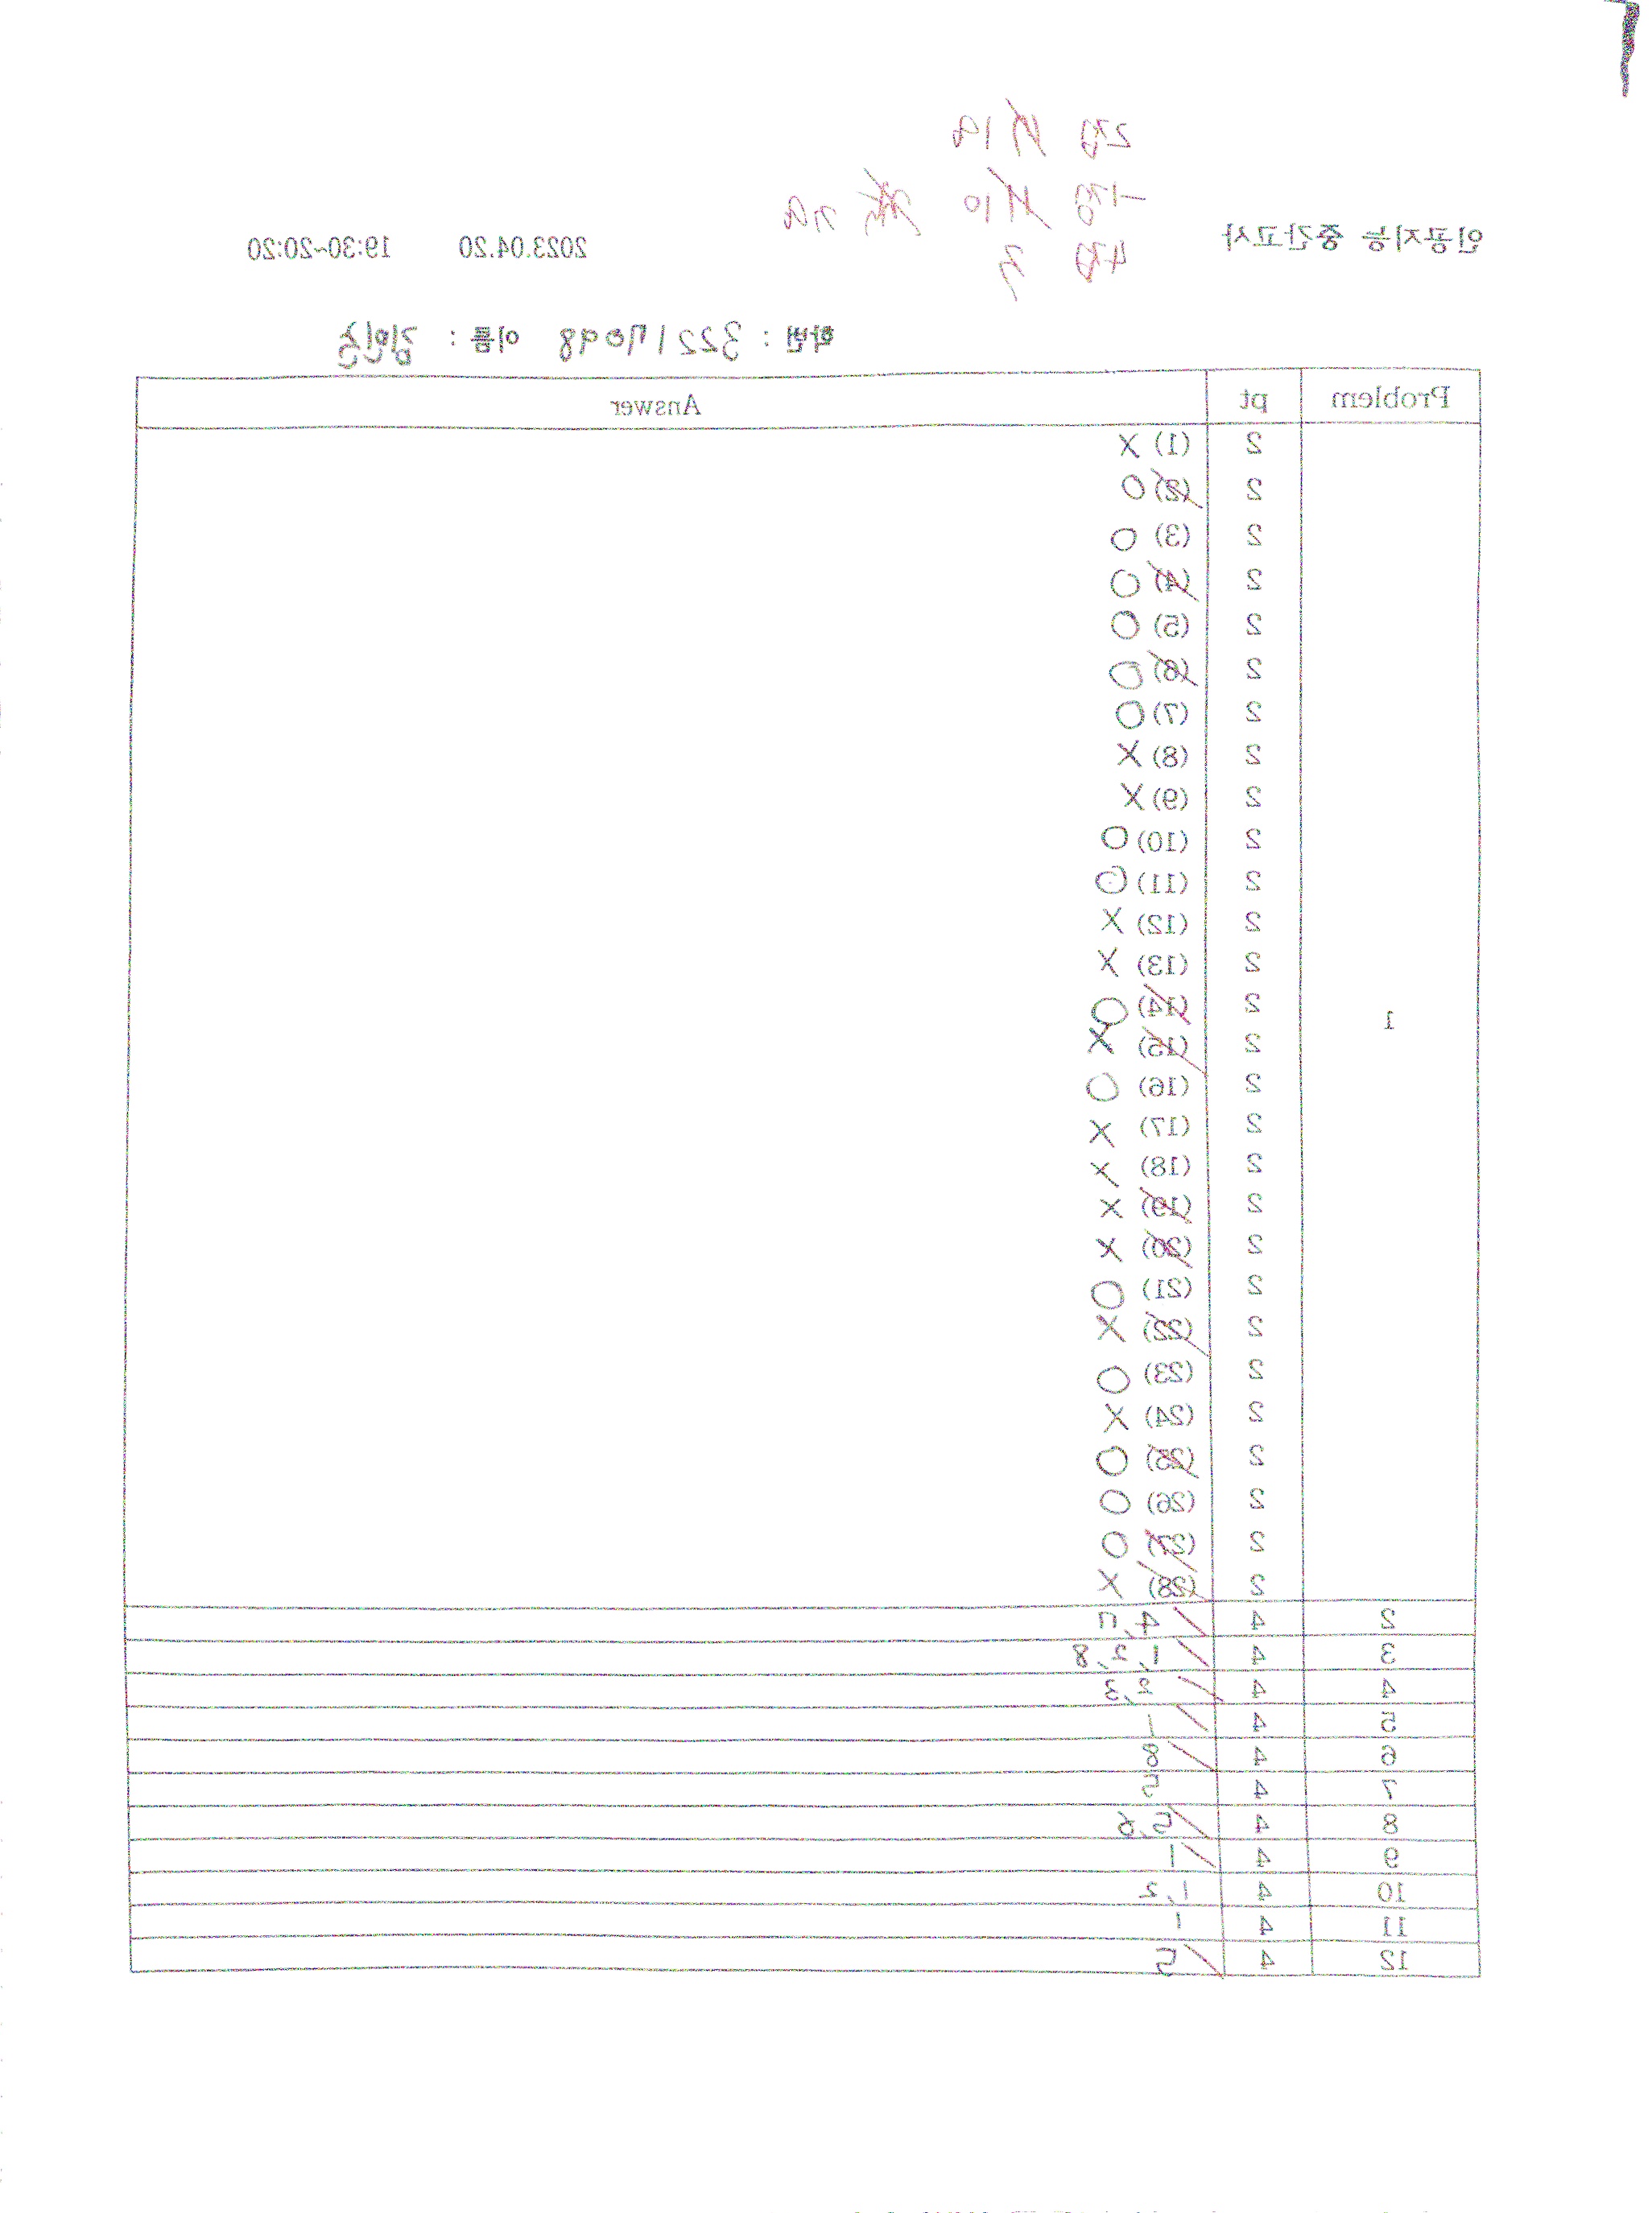 2점
-1점 10
4점 3
인공지능 중간고사 2023.04.20 19:30~20:20
학번 : 32217098 이름 :
Problem pt Answer
1
2 (1) X
2 (2) O
2 (3) O
2 (4) O
2 (5) O
2 (6) O
2 (7) O
2 (8) X
2 (9) X
2 (10) O
2 (11) O
2 (12) X
2 (13) X
2 (14) O
2 (15) X
2 (16) O
2 (17) X
2 (18) X
2 (19) X
2 (20) X
2 (21) O
2 (22) X
2 (23) O
2 (24) X
2 (25) O
2 (26) O
2 (27) O
2 (28) X
2 4 4,7
3 4 1,2,8
4 4 2,3
5 4 1
6 4 8
7 4 5
8 4 5,6
9 4 1
10 4 1,2
11 4 1
12 4 5